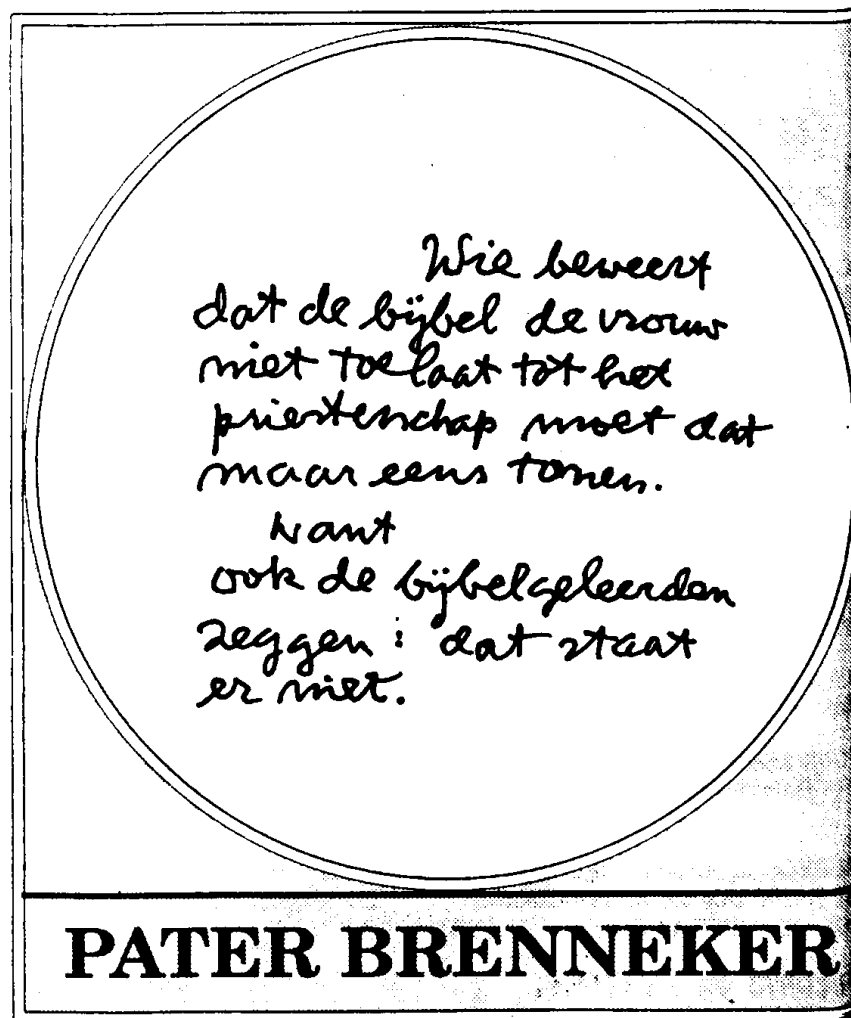 Wie beweert
dat de bijbel de vrouw
niet toelaat tot het
priesterschap moet dat
maar eens tonen.
want
ook de bijbelgeleerden
zeggen: dat staat
er niet.
PATER BRENNEKER